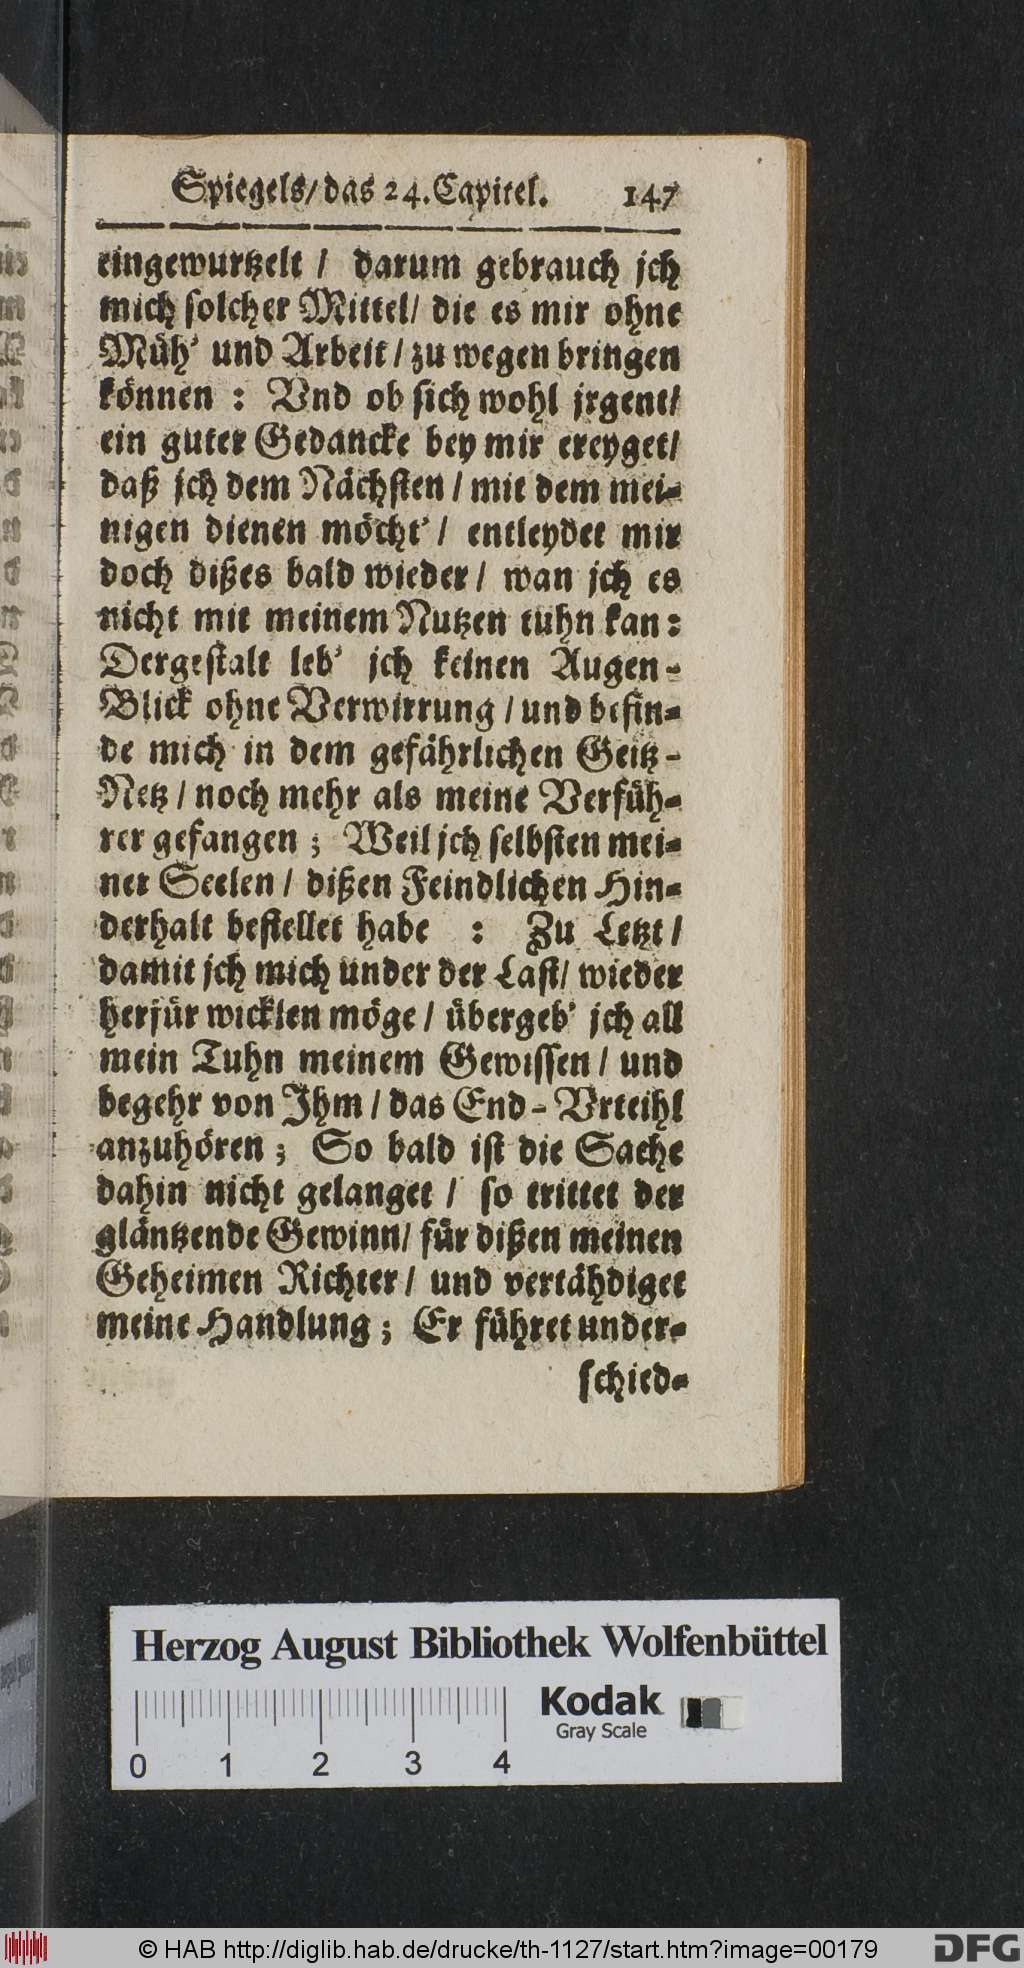 Spiegels/ das 24. Capitel. 147
eingewurtzelt / darum gebrauch jch
mich solcher Mittel/ die es mir ohne
Müh’ und Arbeit / zu wegen bringen
können : Vnd ob sich wohl jrgent/
ein guter Gedancke bey mir ereyget/
daß jch dem Nächsten / mit dem mei-
nigen dienen möcht’ / entleydet mir
doch dißes bald wieder / wan jch es
nicht mit meinem Nutzen tuhn kan:
Dergestalt leb’ jch keinen Augen-
Blick ohne Verwirrung / und befin-
de mich in dem gefährlichen Geitz-
Netz / noch mehr als meine Verfüh-
rer gefangen ; Weil jch selbsten mei-
ner Seelen / dißen Feindlichen Hin-
derhalt bestellet habe : Zu Letzt /
damit jch mich under der Last/ wieder
herfür wicklen möge / übergeb’ jch all
mein Tuhn meinem Gewissen / und
begehr von Jhm / das End-Vrteihl
anzuhören ; So bald ist die Sache
dahin nicht gelanget / so trittet der
gläntzende Gewinn/ für dißen meinen
Geheimen Richter/ und vertähdiget
meine Handlung ; Er führet under-
schied-
Herzog August Bibliothek Wolfenbüttel
Kodak
Gray Scale
0 1 2 3 4
© HAB http://diglib.hab.de/drucke/th-1127/start.htm?image=00179
DFG